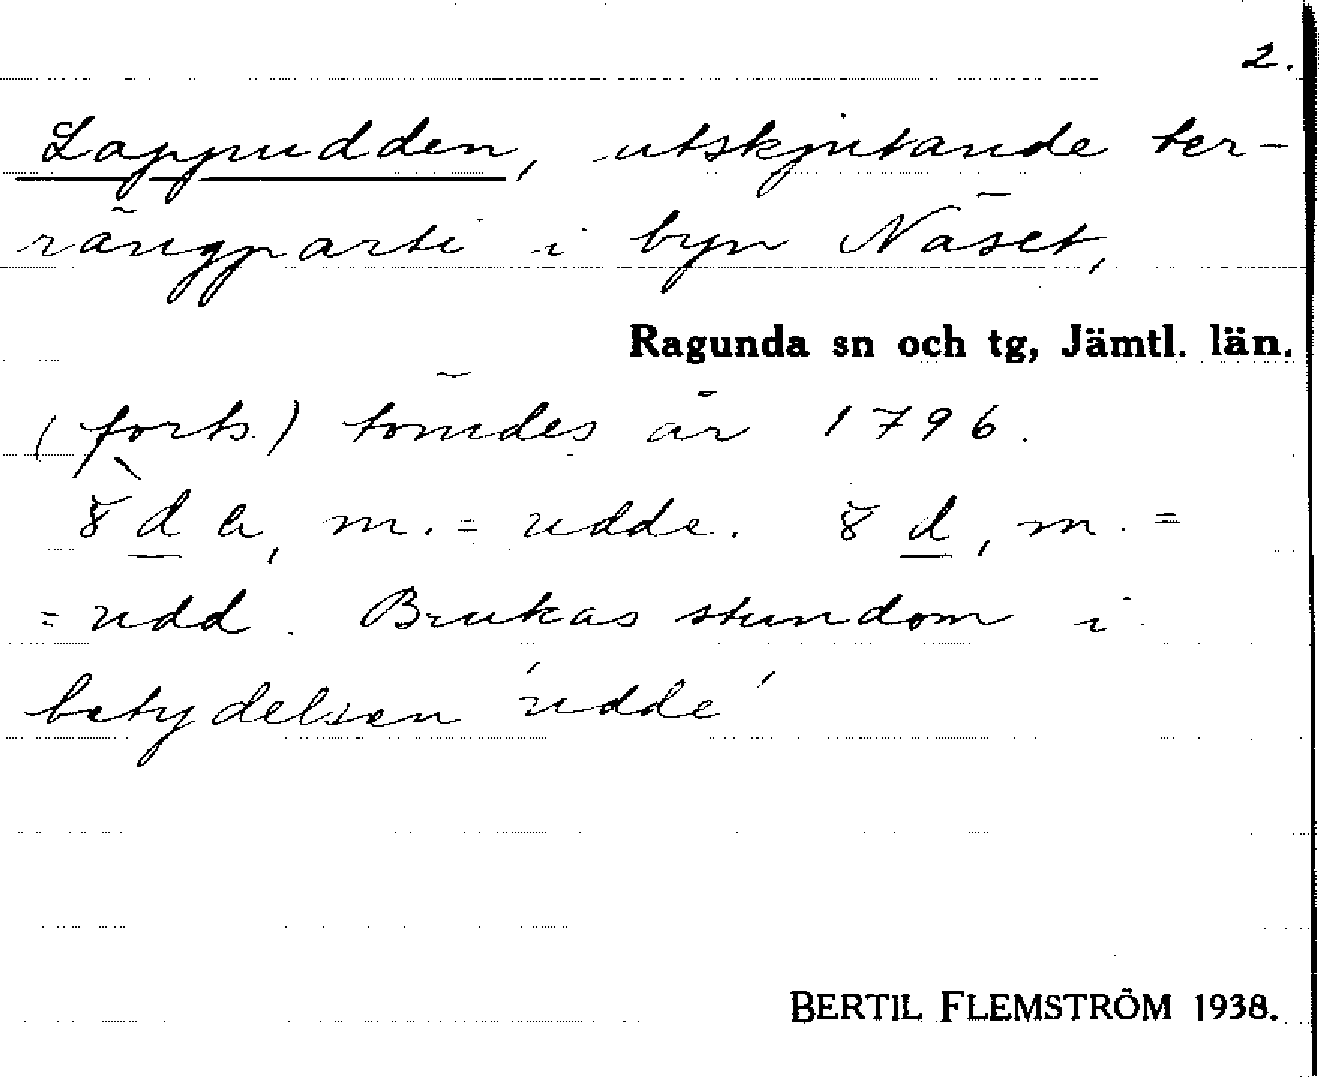 2.
Lappudden, utskjutande ter-
rängparti i byn Näset,
Ragunda sn och tg, Jämtl. län.
(forts.) tömdes år 1796.
m. = udde. m. =
= udd. Brukas stundom i
betydelsen 'udde'
BERTIL FLEMSTRÖM 1938.